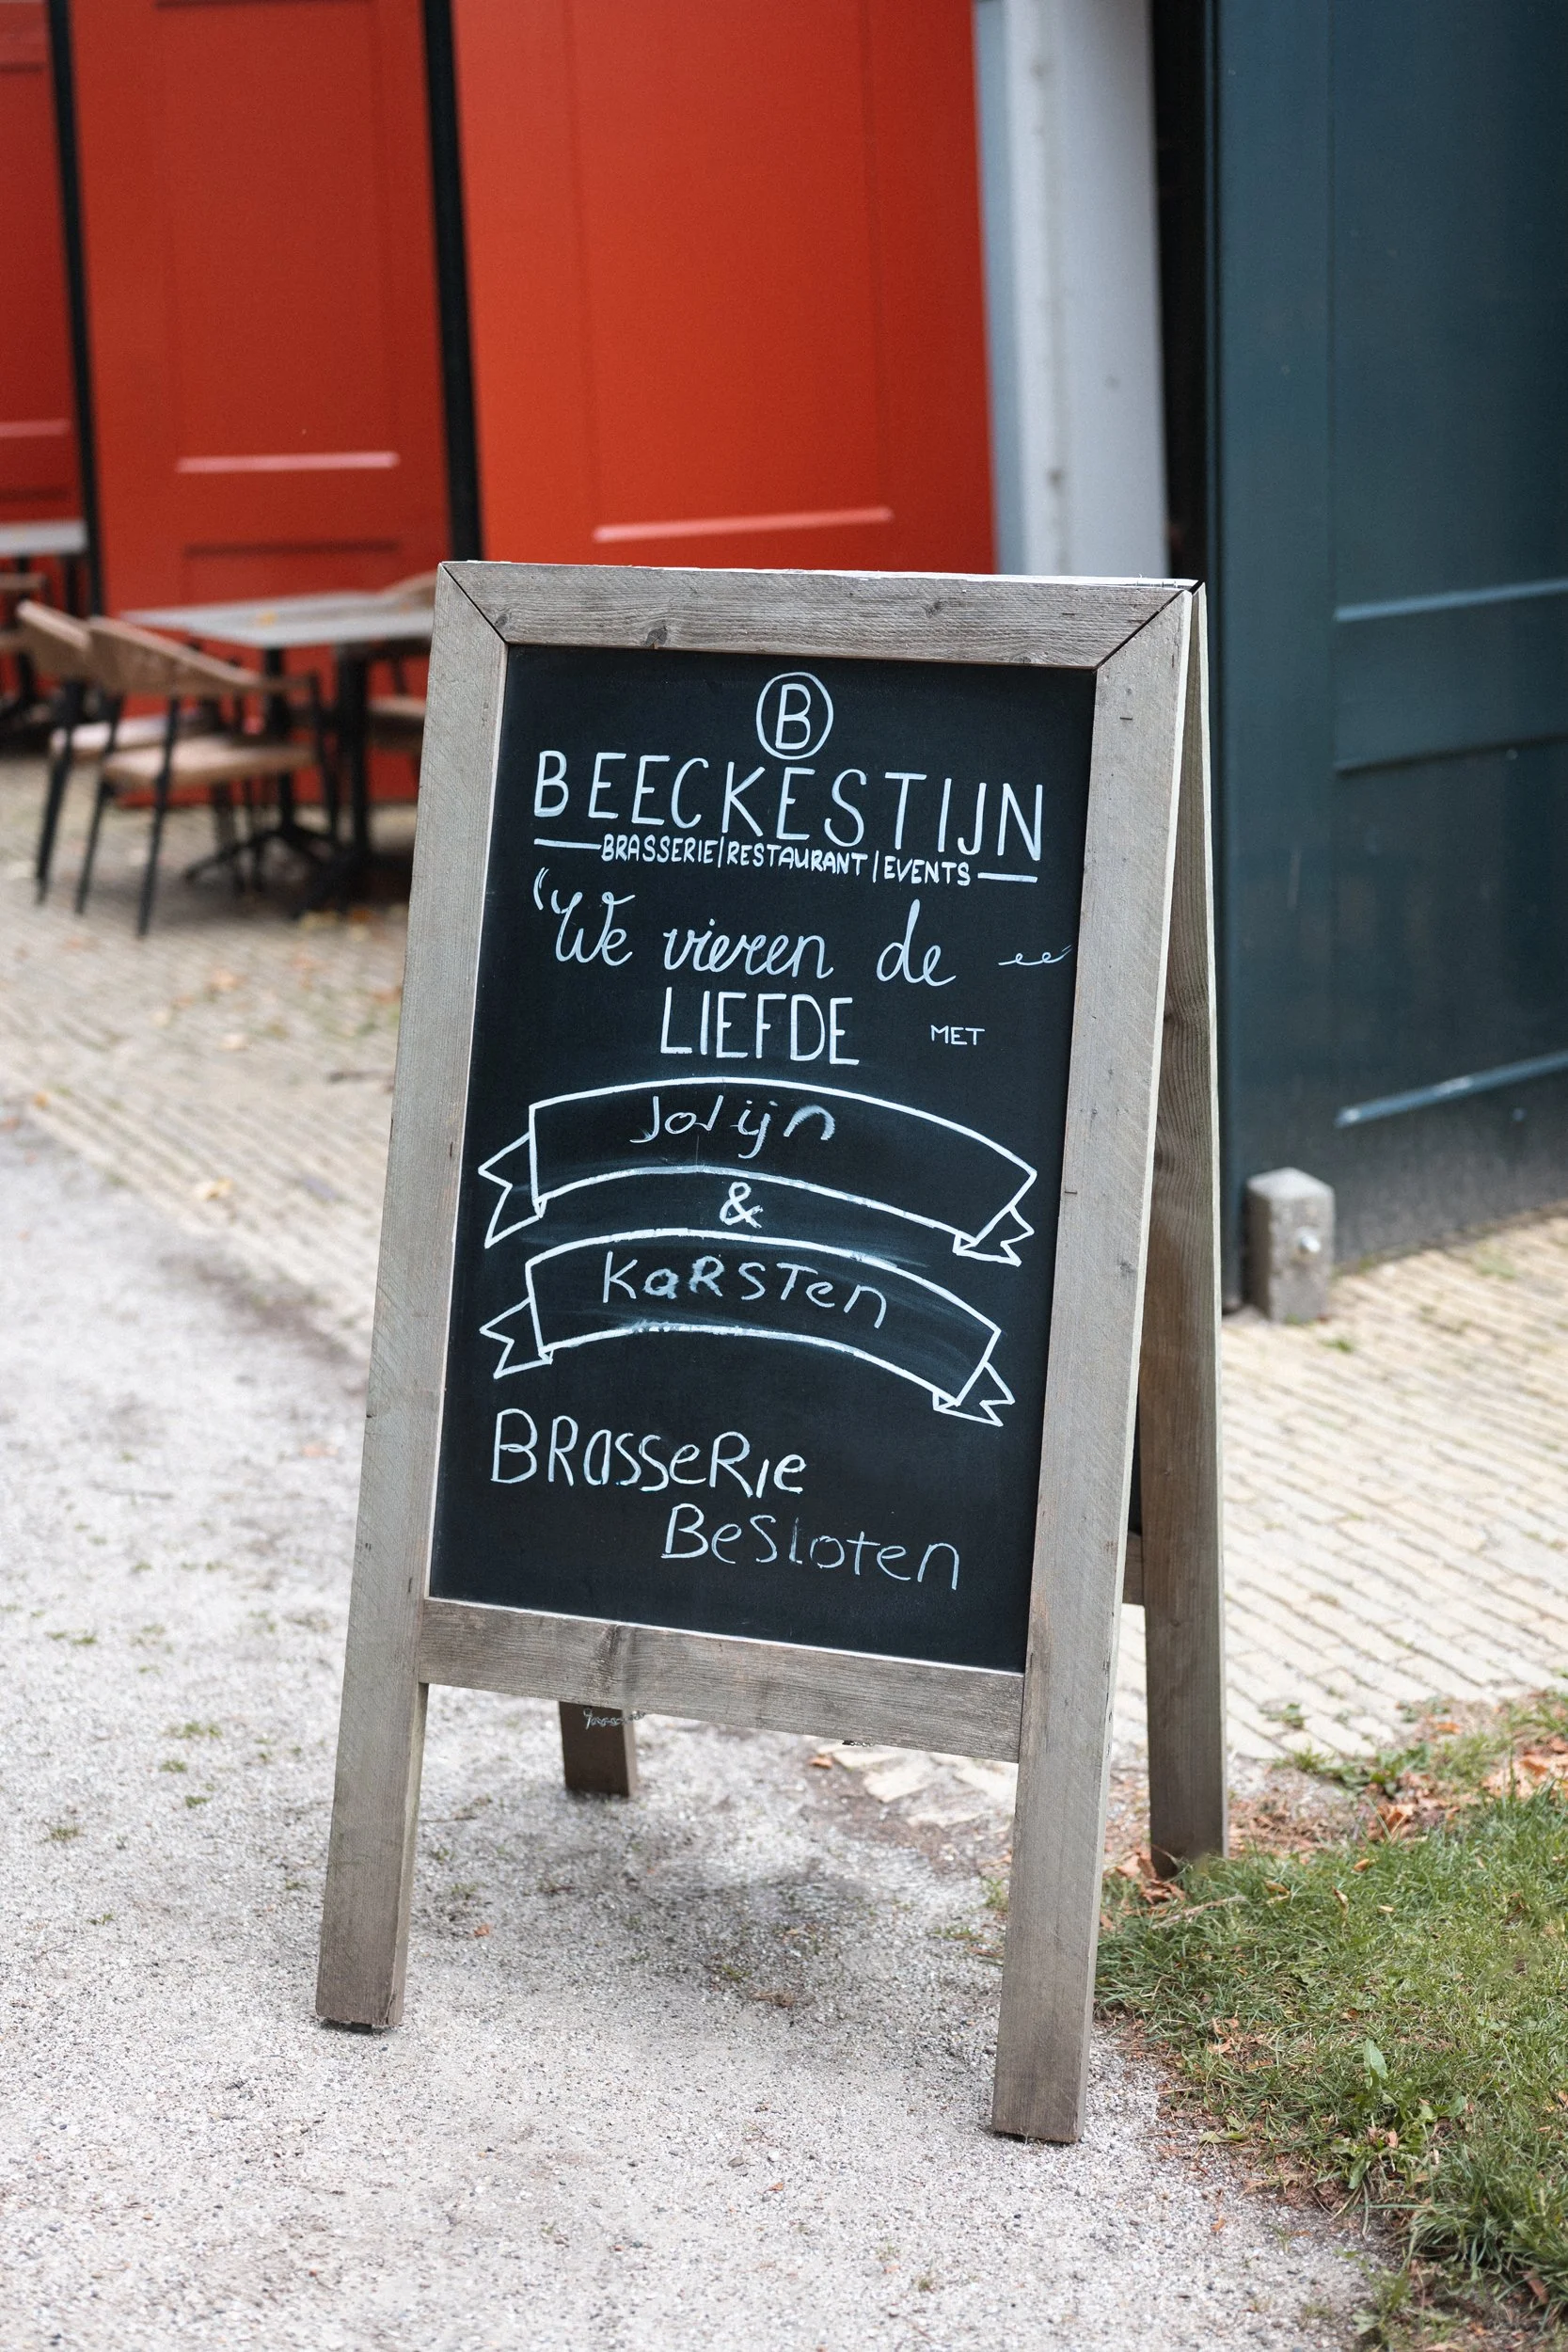 B
BEECKESTIJN
BRASSERIE|RESTAURANT|EVENTS
"We vieren de
LIEFDE MET
Jolijn
&
KaRSTen
BRasseRie
BeSloten